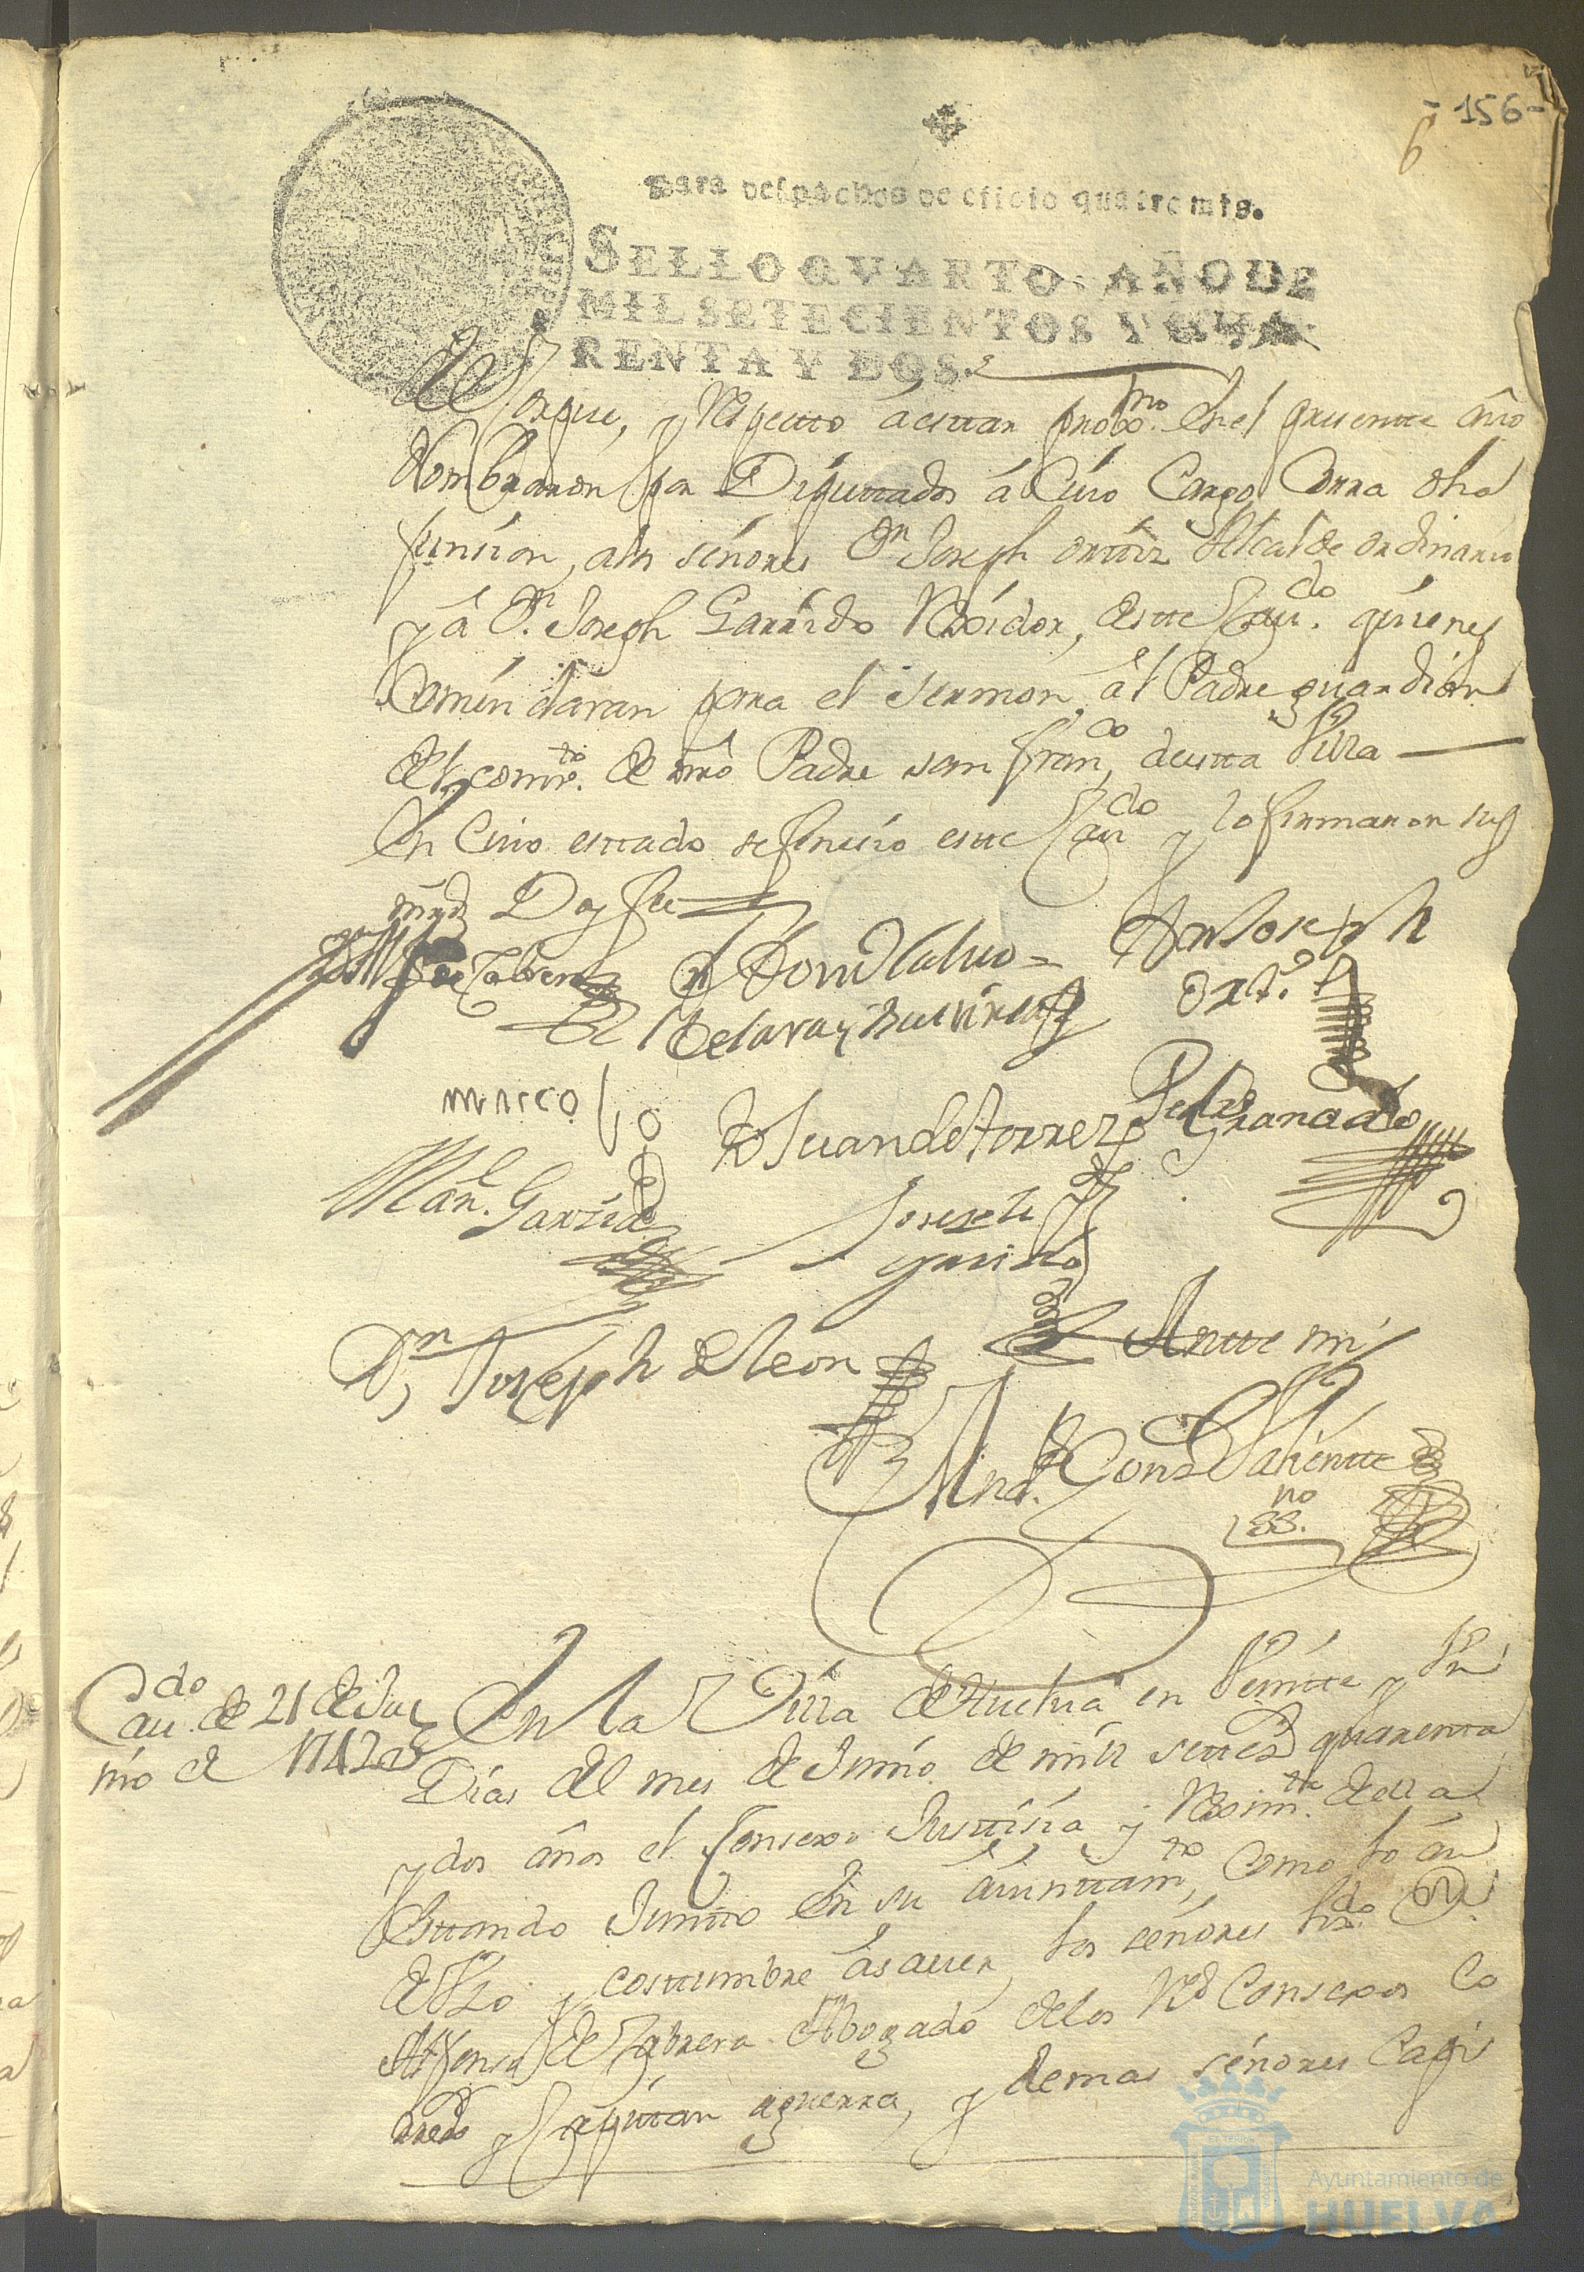 - 156 -
6
Para despachos de oficio quatro mrs.
SELLO QVARTO, AÑO DE
MIL SETECIENTOS Y QUA
RENTA Y DOS.
Corpus, y respecto á estar probo.mo en el presente año
nombraron por Diputtados á Cuio Cargo Corra dha
funsion, a los señores Dn. Joseph orttiz Alcalde ordinario
y a Dn. Joseph Garrido Rexidor, de este Cau.do quienes
Comindaran para el sermon al Padre guardian
del comto. de nro Padre san franco, de esta Villa
En Cuio esttado se fenecio este Caudo y lo firmaron sus
mrds Doy fee
de Cabrera
Don Joseph
Ortis
marcos
Juan de torres
Pedro Granado
Man.l Garzia
Joseph
garrido
Dn Joseph de leon
Antte mi
And. Gonz Valientte
ss.no
Caudo. de 21 de Ju
nio de 1742
En la Villa de Huelva en Veintte y Un
Dias del mes de Junio de mill settesd quarenta
y dos años el Consexo Justtisia y Reximto. de ella
esttando Juntto en su aiunttamto, como lo án
de Uzo y costtumbre ásauer, los señores Lizdo. Dn
Alfonso de Cabrera Abogado de los Rs Consexos Co
rredo y Capittan aguerra, y demas señores Capi
Ayuntamiento de
HUELVA